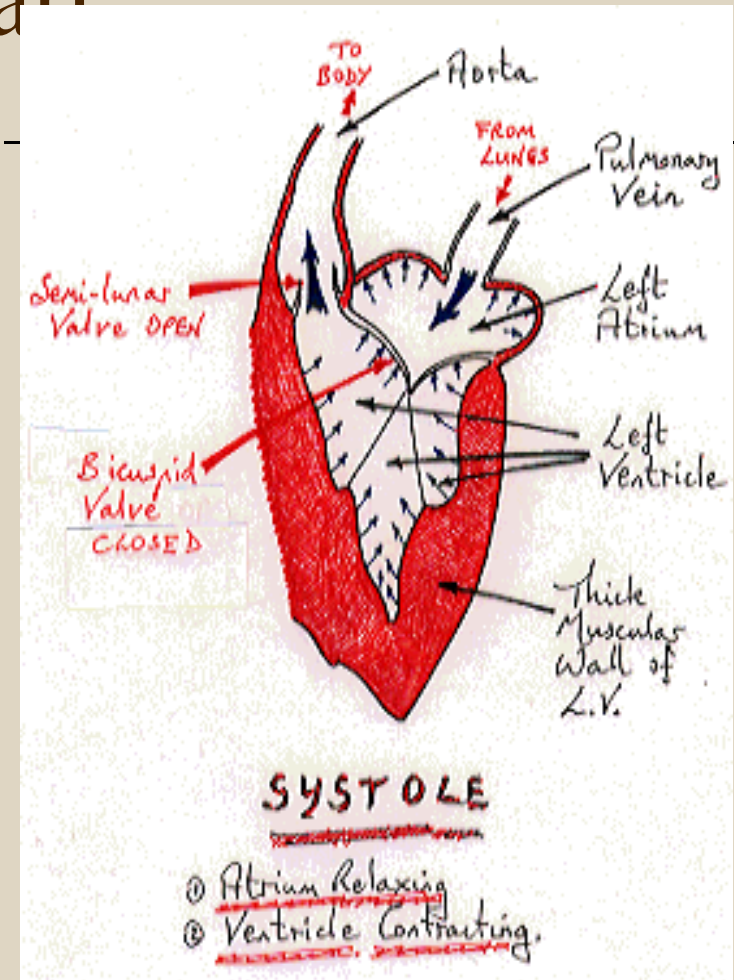 TO
BODY
Aorta
FROM
LUNGS
Pulmonary
Vein
Semi-lunar
Valve OPEN
Left
Atrium
Bicuspid
Valve
CLOSED
Left
Ventricle
Thick
Muscular
Wall of
L.V.
SYSTOLE
① Atrium Relaxing
② Ventricle Contracting.